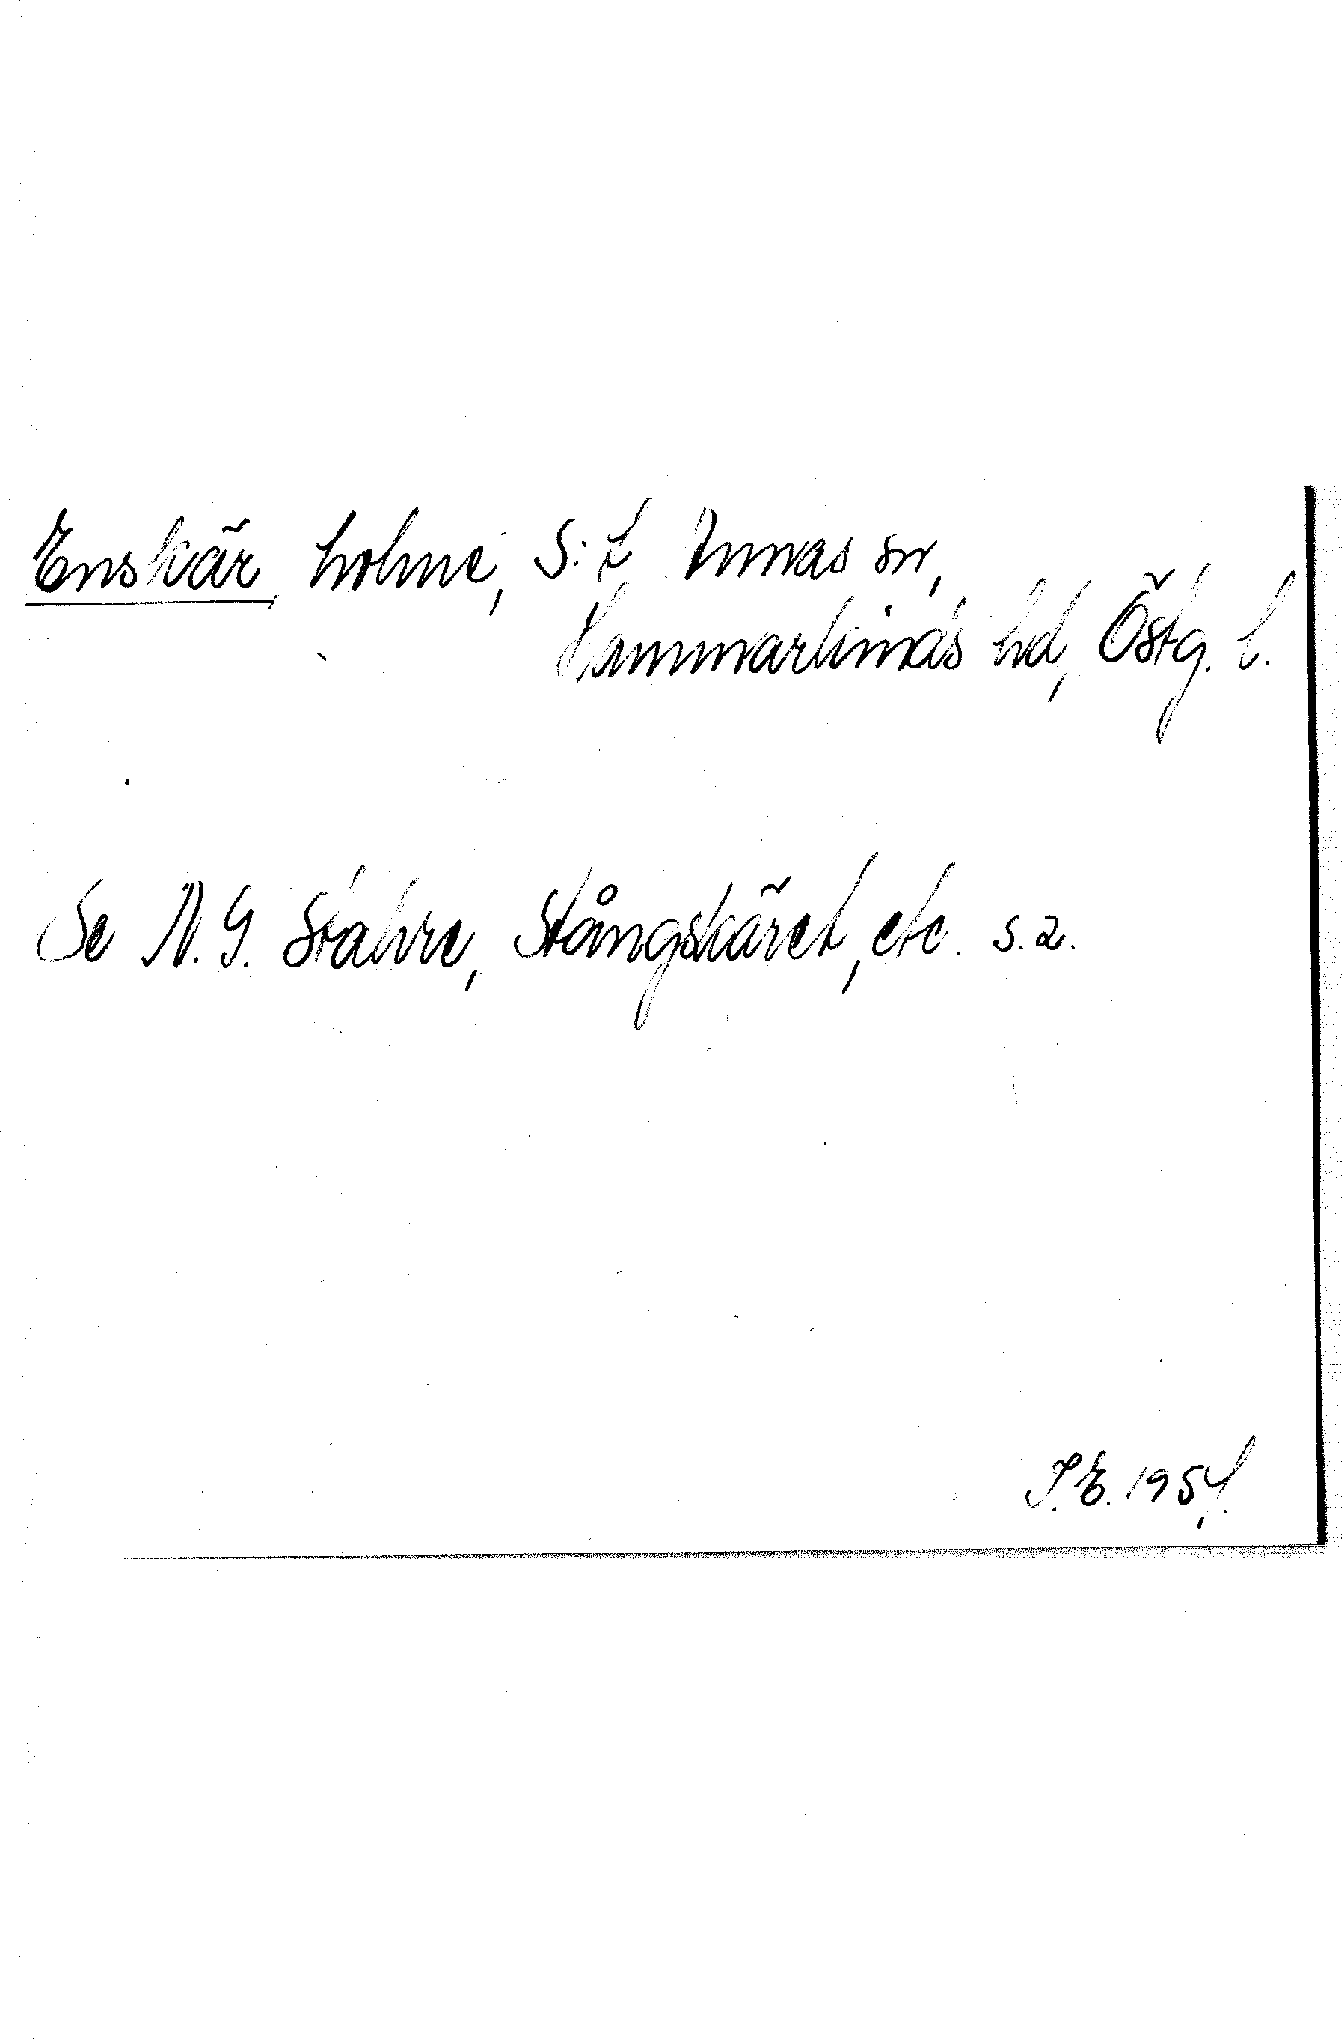 Enskär, holme, S:t Annas sn,
Hammarkinds hd, Östg. l.
Se N. G. Stahre, Stångskäret, etc. s. 2.
I. E. 1954.